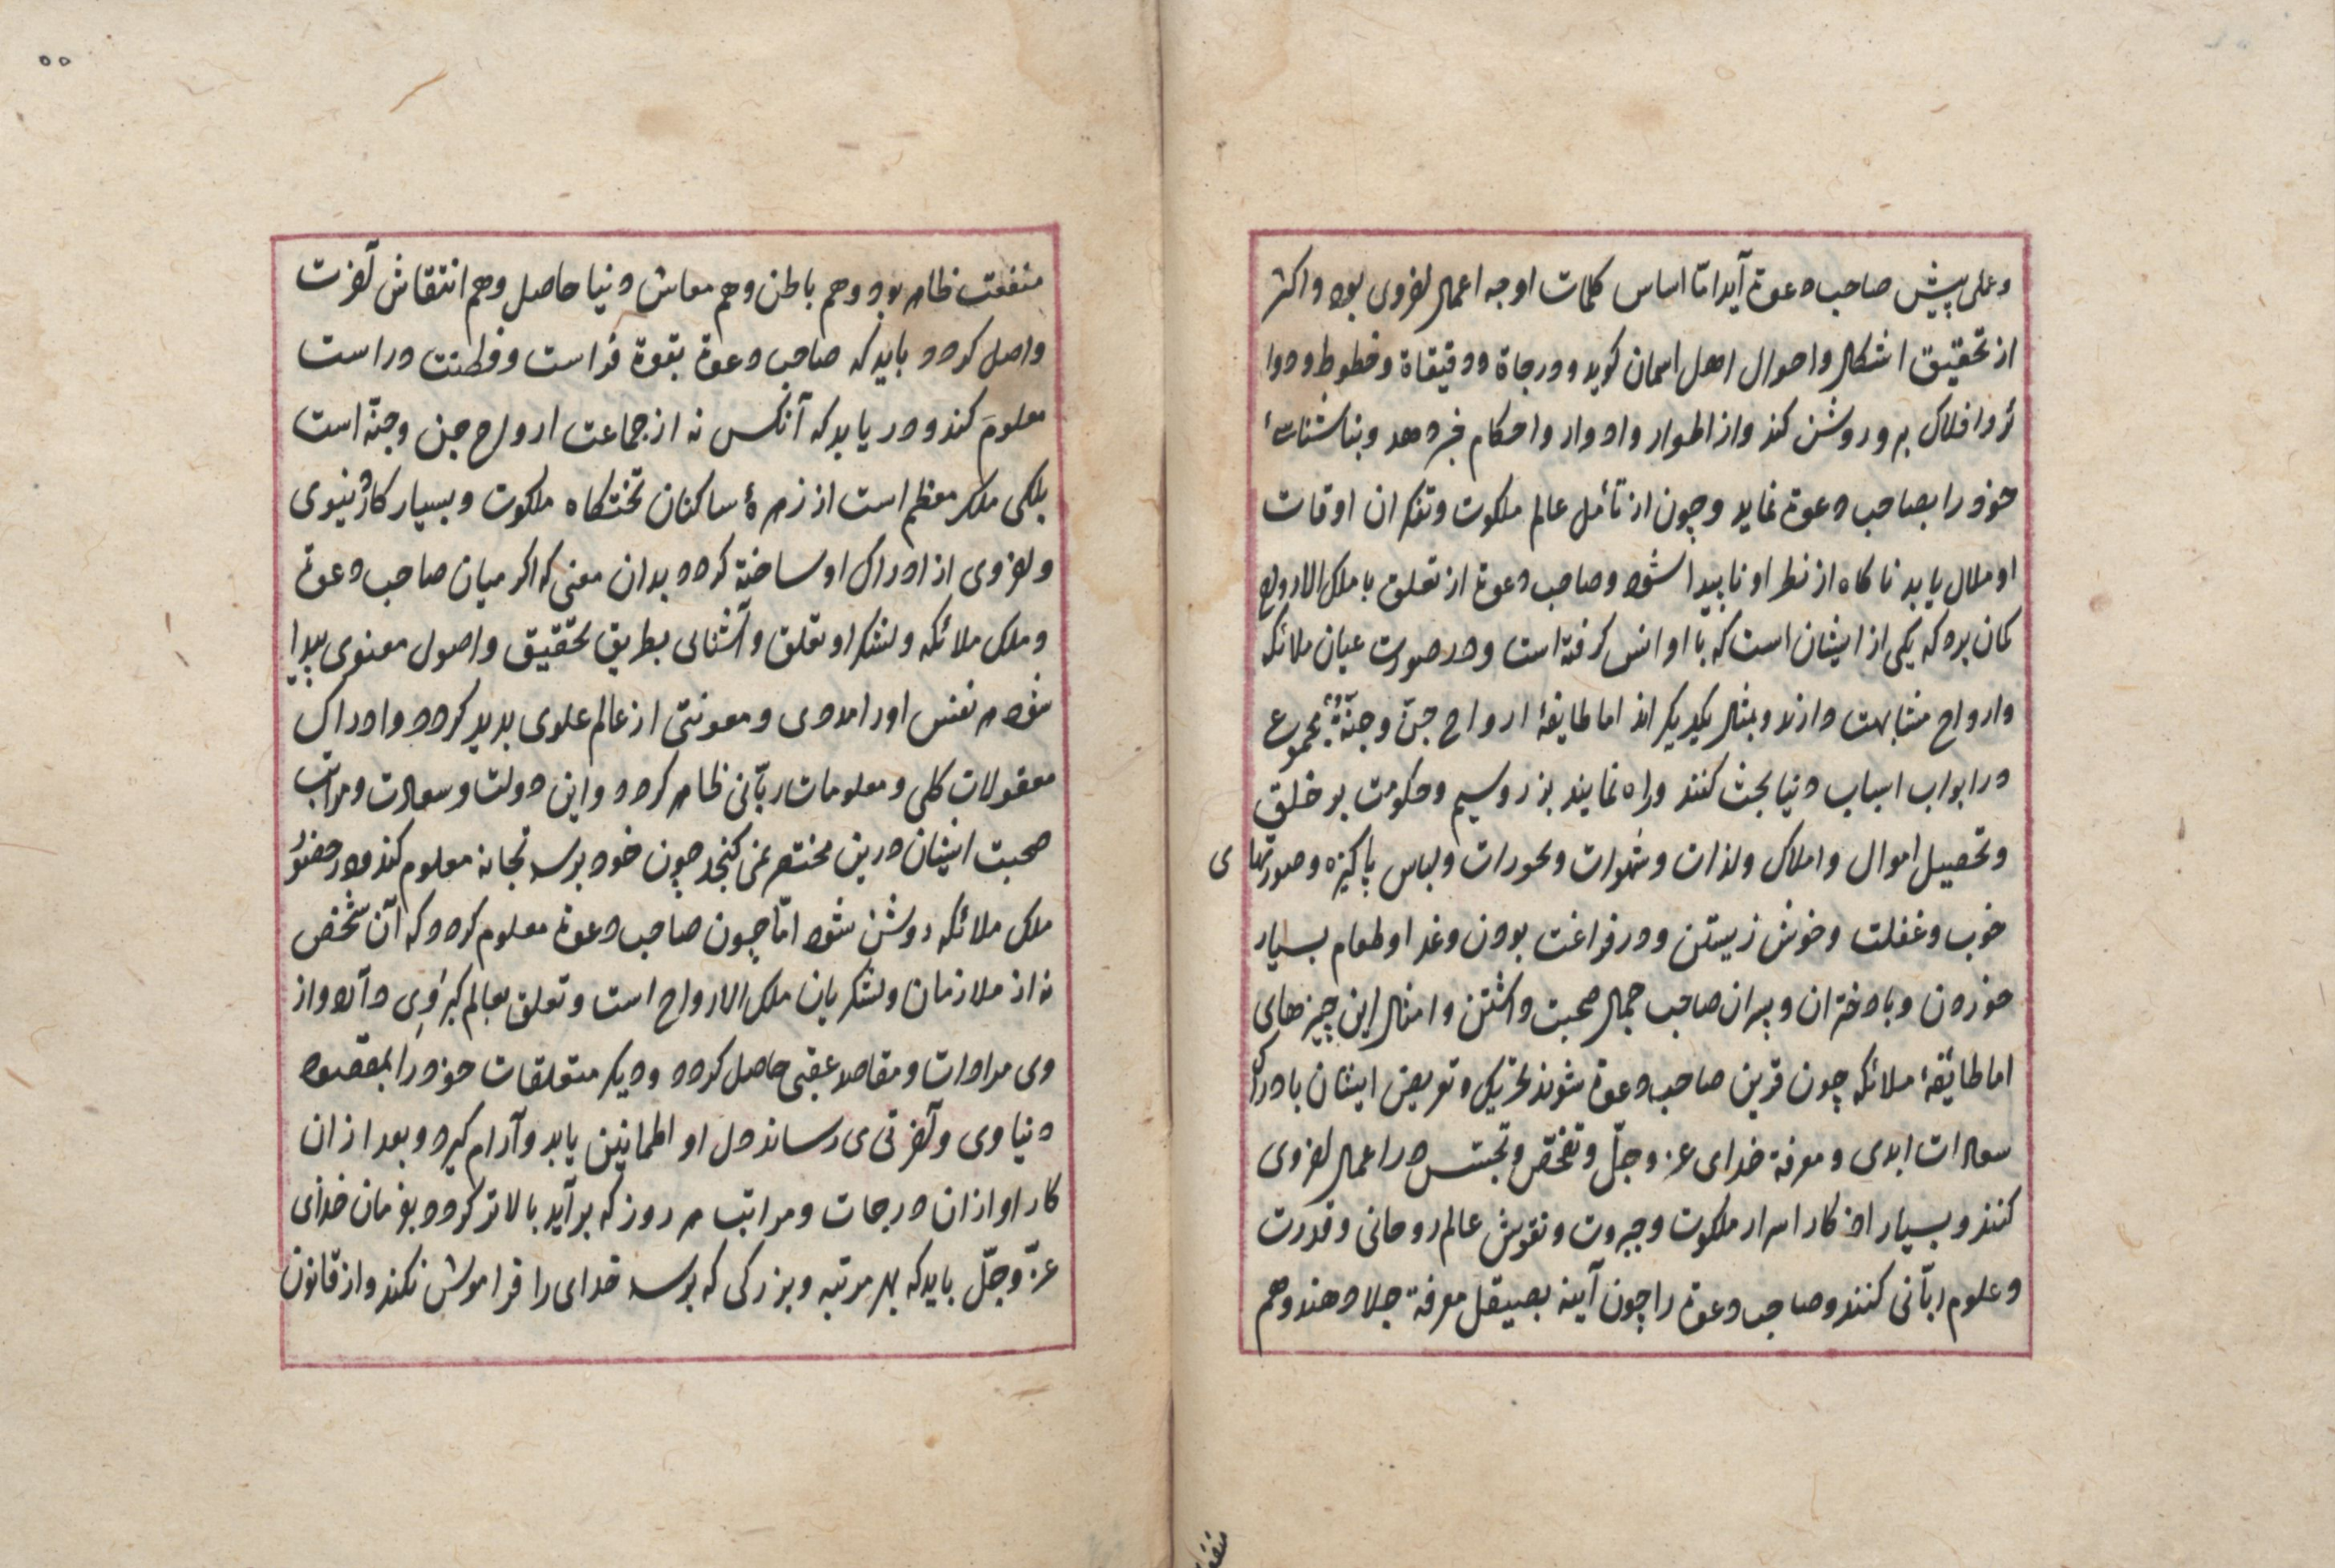 وعلی پیش صاحب دعوة آید امّا اساس کلمات او جه اعمال اخروی بود واکثر
از تحقیق اشکال واحوال اهل اسمان کوید ودرجاة ودقیقاة وخطوط ودوا
ئر وافلاک برو روشن کند واز اطوار وادوار واحکام خبر دهد وبناشناسئ
خود را بصاحب دعوة نماید وچون از تأمل عالم ملکوت وتفکر ان اوقات
او ملال یابد ناکاه از نطر او ناپیدا شود وصاحب دعوة از تعلق با ملک الارواح
کمان برد که یکی از ایشان است که با او انس کرفته است ودر صورت عیان ملائکه
وارواح مشابهت دارند ومثال یکدیکر اند اما طایفهٔ ارواح جنّ وجنّه مجموع
در ابواب اسباب دنیا بحث کنند وراه نمایند بزر وسیم وحکومت بر خلق
وتحصیل اموال واملاک ولذات وشهوات وبخورات ولباس پاکیزه وصورتها ی
خوب وغفلت وخوش زیستن ودر فراغت بودن وغدا وطعام بسیار
خوردن وبا دختران وپسران صاحب جمال صحبت داشتن وامثال این چیزهای
اما طائفهٔ ملائکه چون قرین صاحب دعوة شوند تحریک وتعریض ایشان با دراک
سعادات ابدی ومعرفة خدای عزّ وجلّ وتفحّص وتجسّس در اعمال اخروی
کنند وبسیار اذکار اسرار ملکوت وجبروت ونقوش عالم روحانی وقدرت
وعلوم ربّانی کنند وصاحب دعوة را چون آینه بصیقل معرفة جلا دهند وهم
منفعت ظاهر بود وهم باطن وهم معاش دنیا حاصل وهم انتقاش آخرت
واصل کردد باید که صاحب دعوة بقوة فراست وفطنت دراست
معلوم کند ودر یابد که آنکس نه از جماعت ارواح جن وجنّه است
بلکی ملکر معظم است از زمرهٔ ساکنان تختکاه ملکوت وبسیار کار دنیوی
واخروی از ادراک او ساخته کردد بدان معنی که اکر میان صاحب دعوة
وملک ملائکه ولشکر او تعلق وآشنائی بطریق تحقیق واصول معنوی پیدا
شود هر نفس اورا مددی ومعونتی از عالم علوی پدید کردد وادراک
معقولات کلی ومعلومات ربّانی ظاهر کردد واین دولت وسعادت ومراتب
صحبت ایشان درین مختصر نمی کنجد چون خود برسد تجانه معلوم کند ودر حضور
ملک ملائکه روشن شود امّا چون صاحب دعوة معلوم کردد که آن شخص
نه از ملازمان ولشکریان ملک الارواح است وتعلق بعالم کبراوی دارد واز
وی مرادات ومقاصد عقبی حاصل کردد ودیکر متعلقات خود را بمقصود
دنیاوی وآخرتی می رساند دل او اطمانینن یابد وآرام کیرد وبعد از ان
کار او از ان درجات ومراتب هر روز که برآید بالاتر کردد بفرمان خدای
عزّ وجلّ باید که بهر مرتبه وبزرکی که برسد خدای را فراموش نکند واز قانون